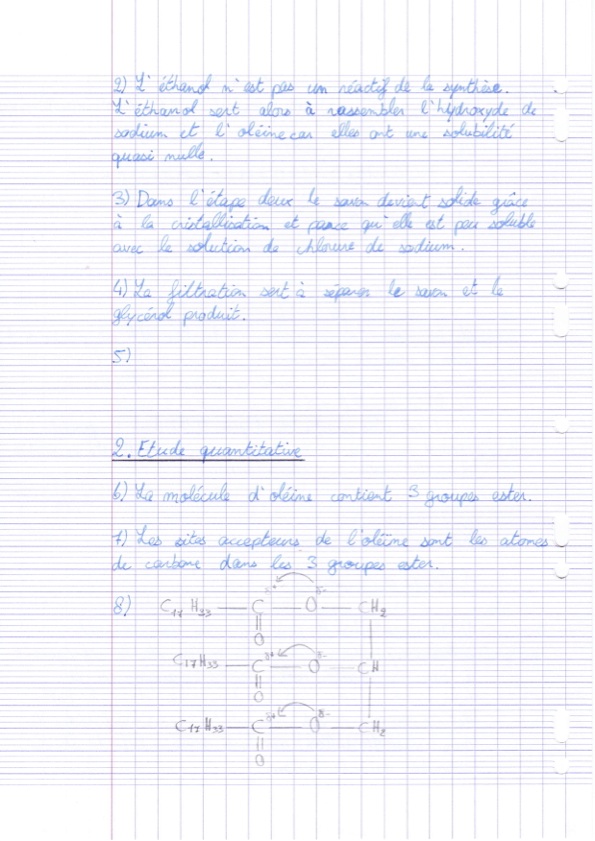 2) L'éthanol n'est pas un réactif de la synthèse.
L'éthanol sert alors à rassembler l'hydroxyde de
sodium et l'oléine car elles ont une solubilité
quasi nulle.
3) Dans l'étape deux le savon devient solide grâce
à la cristallisation et parce qu'elle est peu soluble
avec la solution de chlorure de sodium.
4) La filtration sert à séparer le savon et le
glycérol produit.
5)
2. Etude quantitative
6) La molécule d'oléine contient 3 groupes ester.
7) Les sites accepteurs de l'oléïne sont les atomes
de carbone dans les 3 groupes ester.
8) C17 H33 — C δ+ — O δ- — CH2
O
C17H33 — C δ+ — O δ- — CH
O
C17 H33 — C δ+ — O δ- — CH2
O